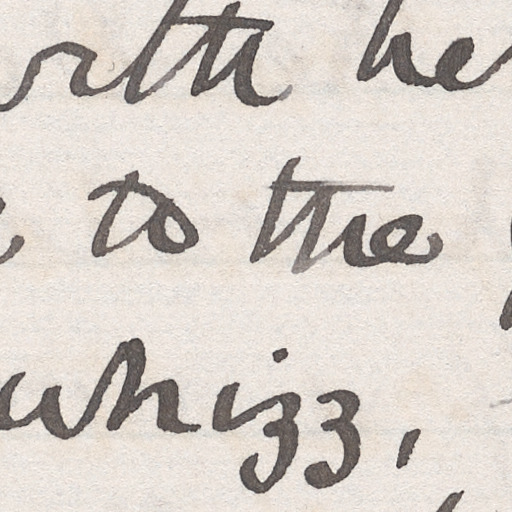 with he
to the
whizz,